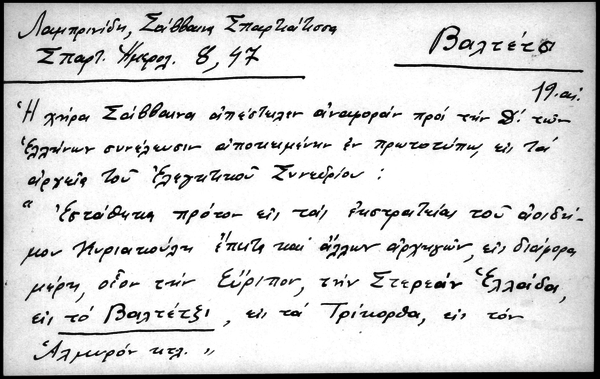 Λαμπρινίδη, Σάββαινα Σπαρτιάτισσα
Σπαρτ. Ημερολ. 8, 47
Βαλτέτσι
19. αἰ.
Ἡ χήρα Σάββαινα ἀπέστειλεν ἀναφοράν πρός τήν Δ΄. τῶν
Ἑλλήνων συνέλευσιν ἀποκειμένην ἐν πρωτοτύπῳ, εἰς τά
ἀρχεῖα τοῦ Ἐλεγκτικοῦ Συνεδρίου :
" Ἐστάθηκα πρότον εἰς τάς ἐκστρατείας τοῦ ἀοιδί-
μου Κυριακούλη ἔπειτα καί ἄλλων ἀρχηγῶν, εἰς διάφορα
μέρη, οἷον τήν Εὔριπον, τήν Στερεάν Ἑλλάδα,
εἰς τό Βαλτέτζι, εἰς τά Τρίκορθα, εἰς τόν
Ἁλμυρόν κτλ. "